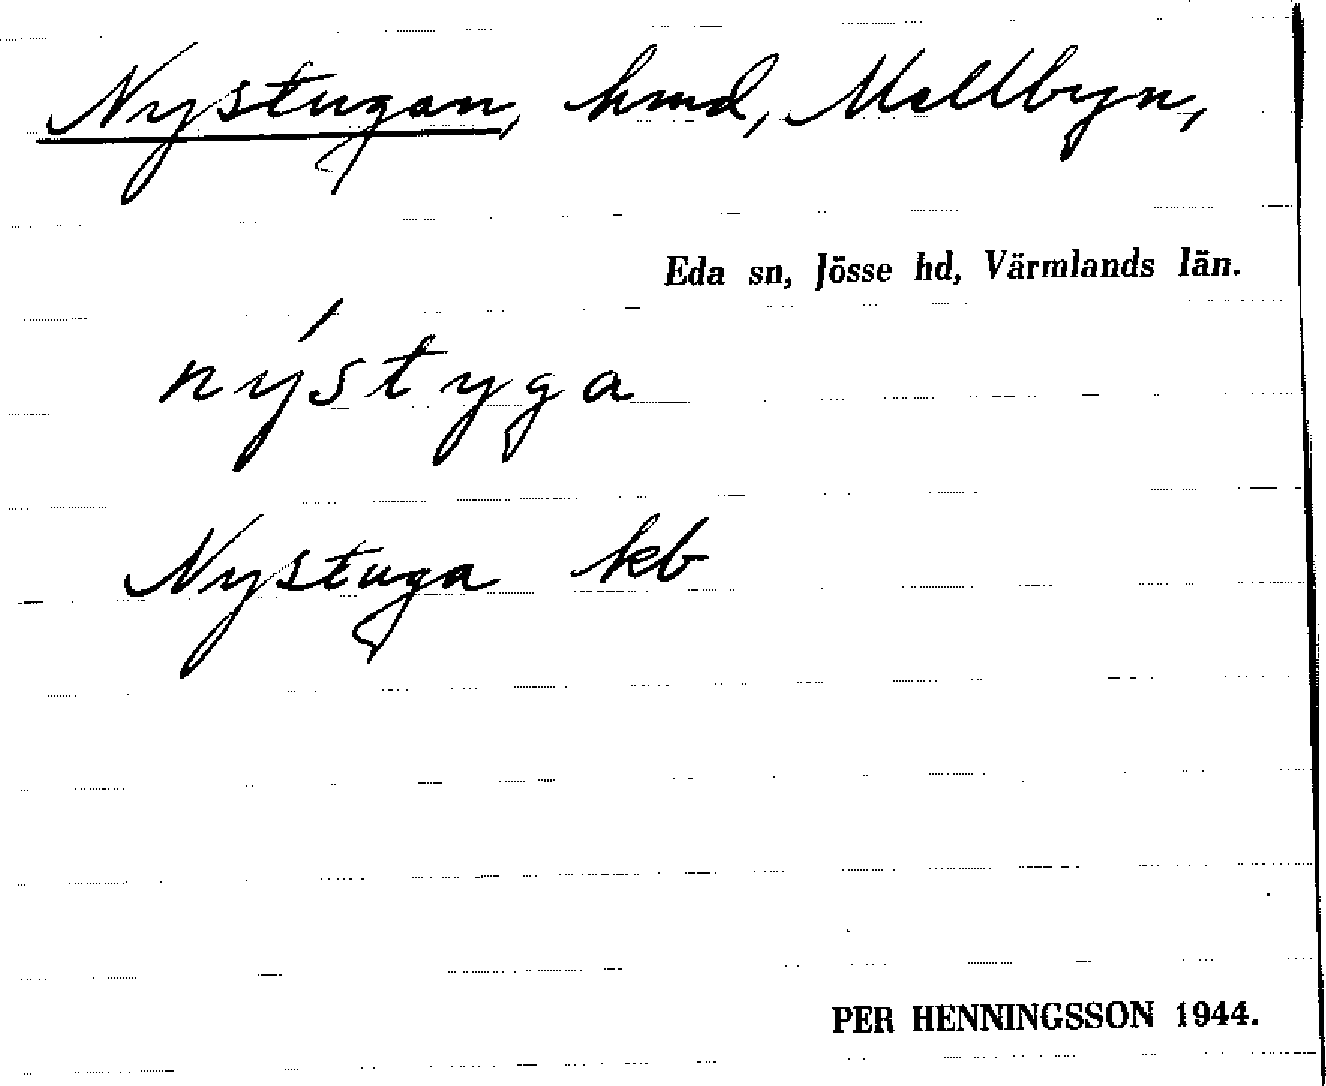 Nystugan, hmd, Mellbyn,
Eda sn, Jösse hd, Värmlands län.
nýstyga
Nystuga kb
PER HENNINGSSON 1944.